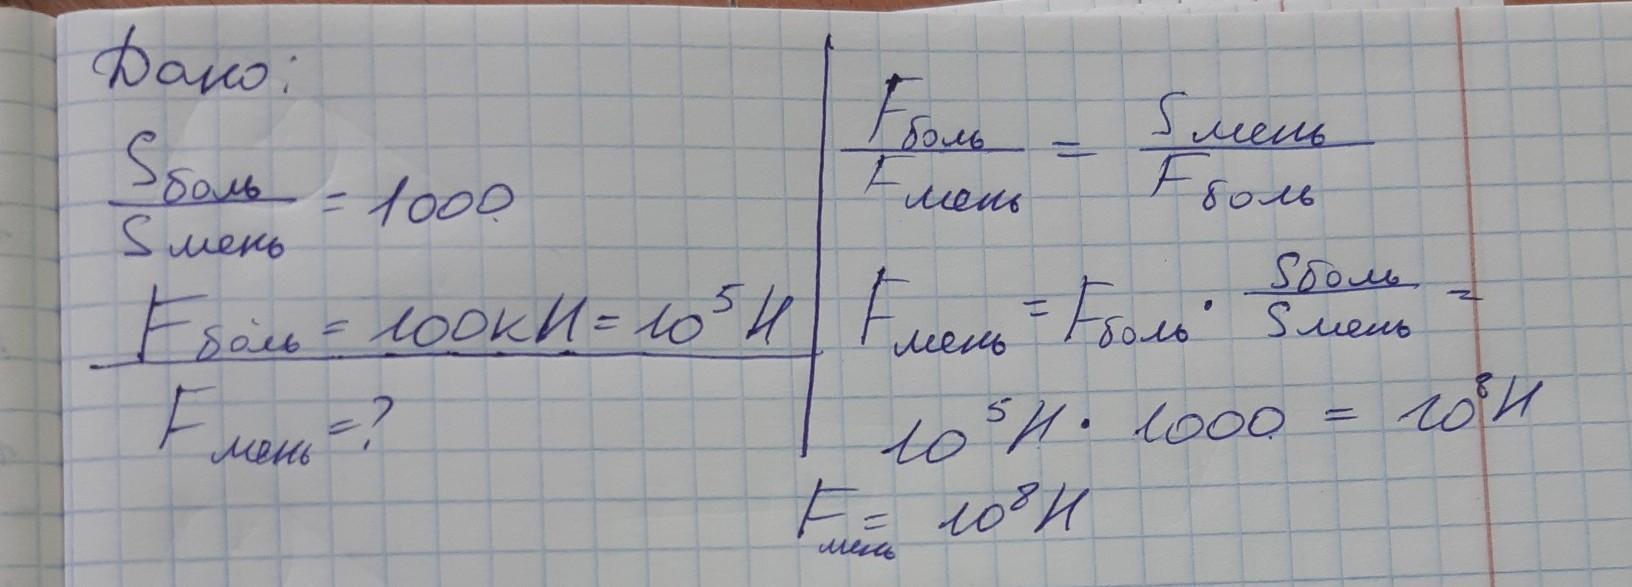 Дано:
Sболь/Sмень = 1000
Fболь = 100кН = 10⁵Н
Fмень = ?
Fболь/Fмень = Sмень/Fболь
Fмень = Fболь · Sболь/Sмень =
10⁵Н · 1000 = 10⁸Н
Fмень = 10⁸Н